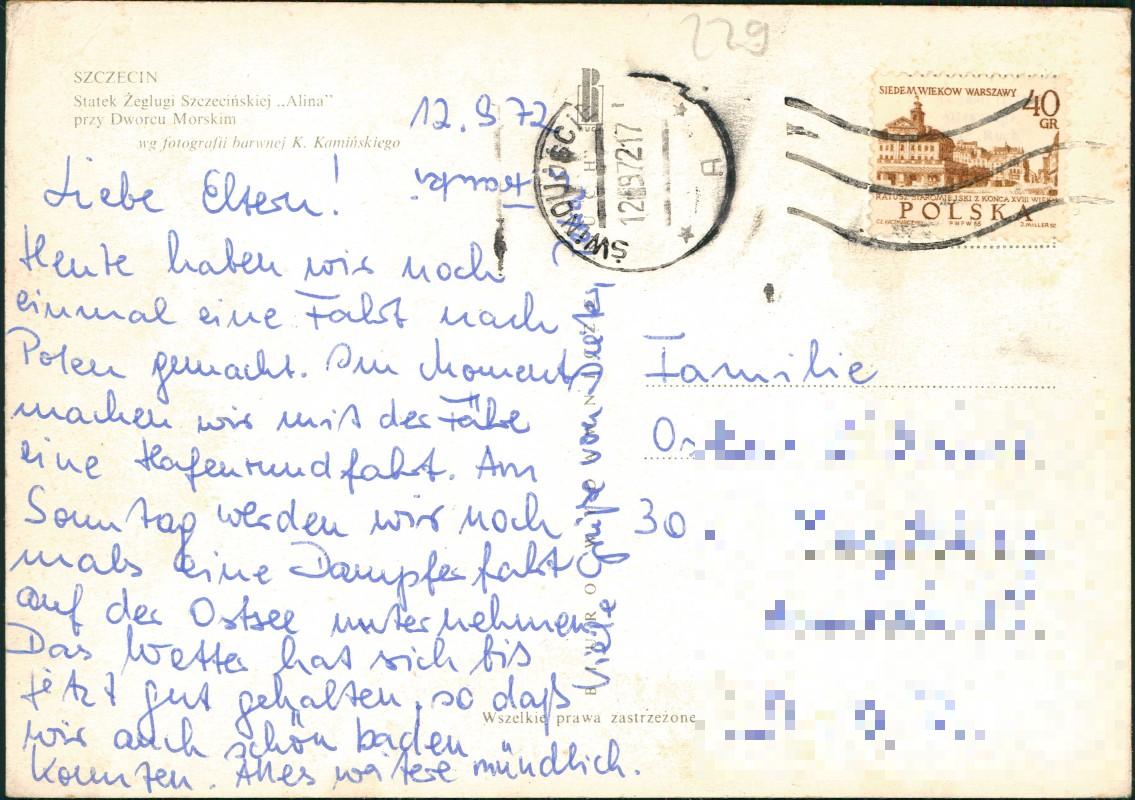 229
SZCZECIN
Statek Żeglugi Szczecińskiej „Alina”
przy Dworcu Morskim
wg fotografii barwnej K. Kamińskiego
12.9.72
Liebe Eltern!
Heute haben wir noch
einmal eine Fahrt nach
Polen gemacht. Im Moment
machen wir mit der Fähre
eine Hafenrundfahrt. Am
Sonntag werden wir noch
mals eine Dampferfahrt
auf der Ostsee unternehmen.
Das Wetter hat sich bis
jetzt gut gehalten, so daß
wir auch schön baden
konnten. Alles weitere mündlich.
Viele Grüße von
RUCH
BIURO
Wszelkie prawa zastrzeżone
ŚWINOUJŚCIE
12.-9.72.17
A
SIEDEM WIEKÓW WARSZAWY
40
GR
RATUSZ STAROMIEJSKI Z KOŃCA XVIII WIEKU
POLSKA
PWPW 65
J. MILLER SC.
Familie
30